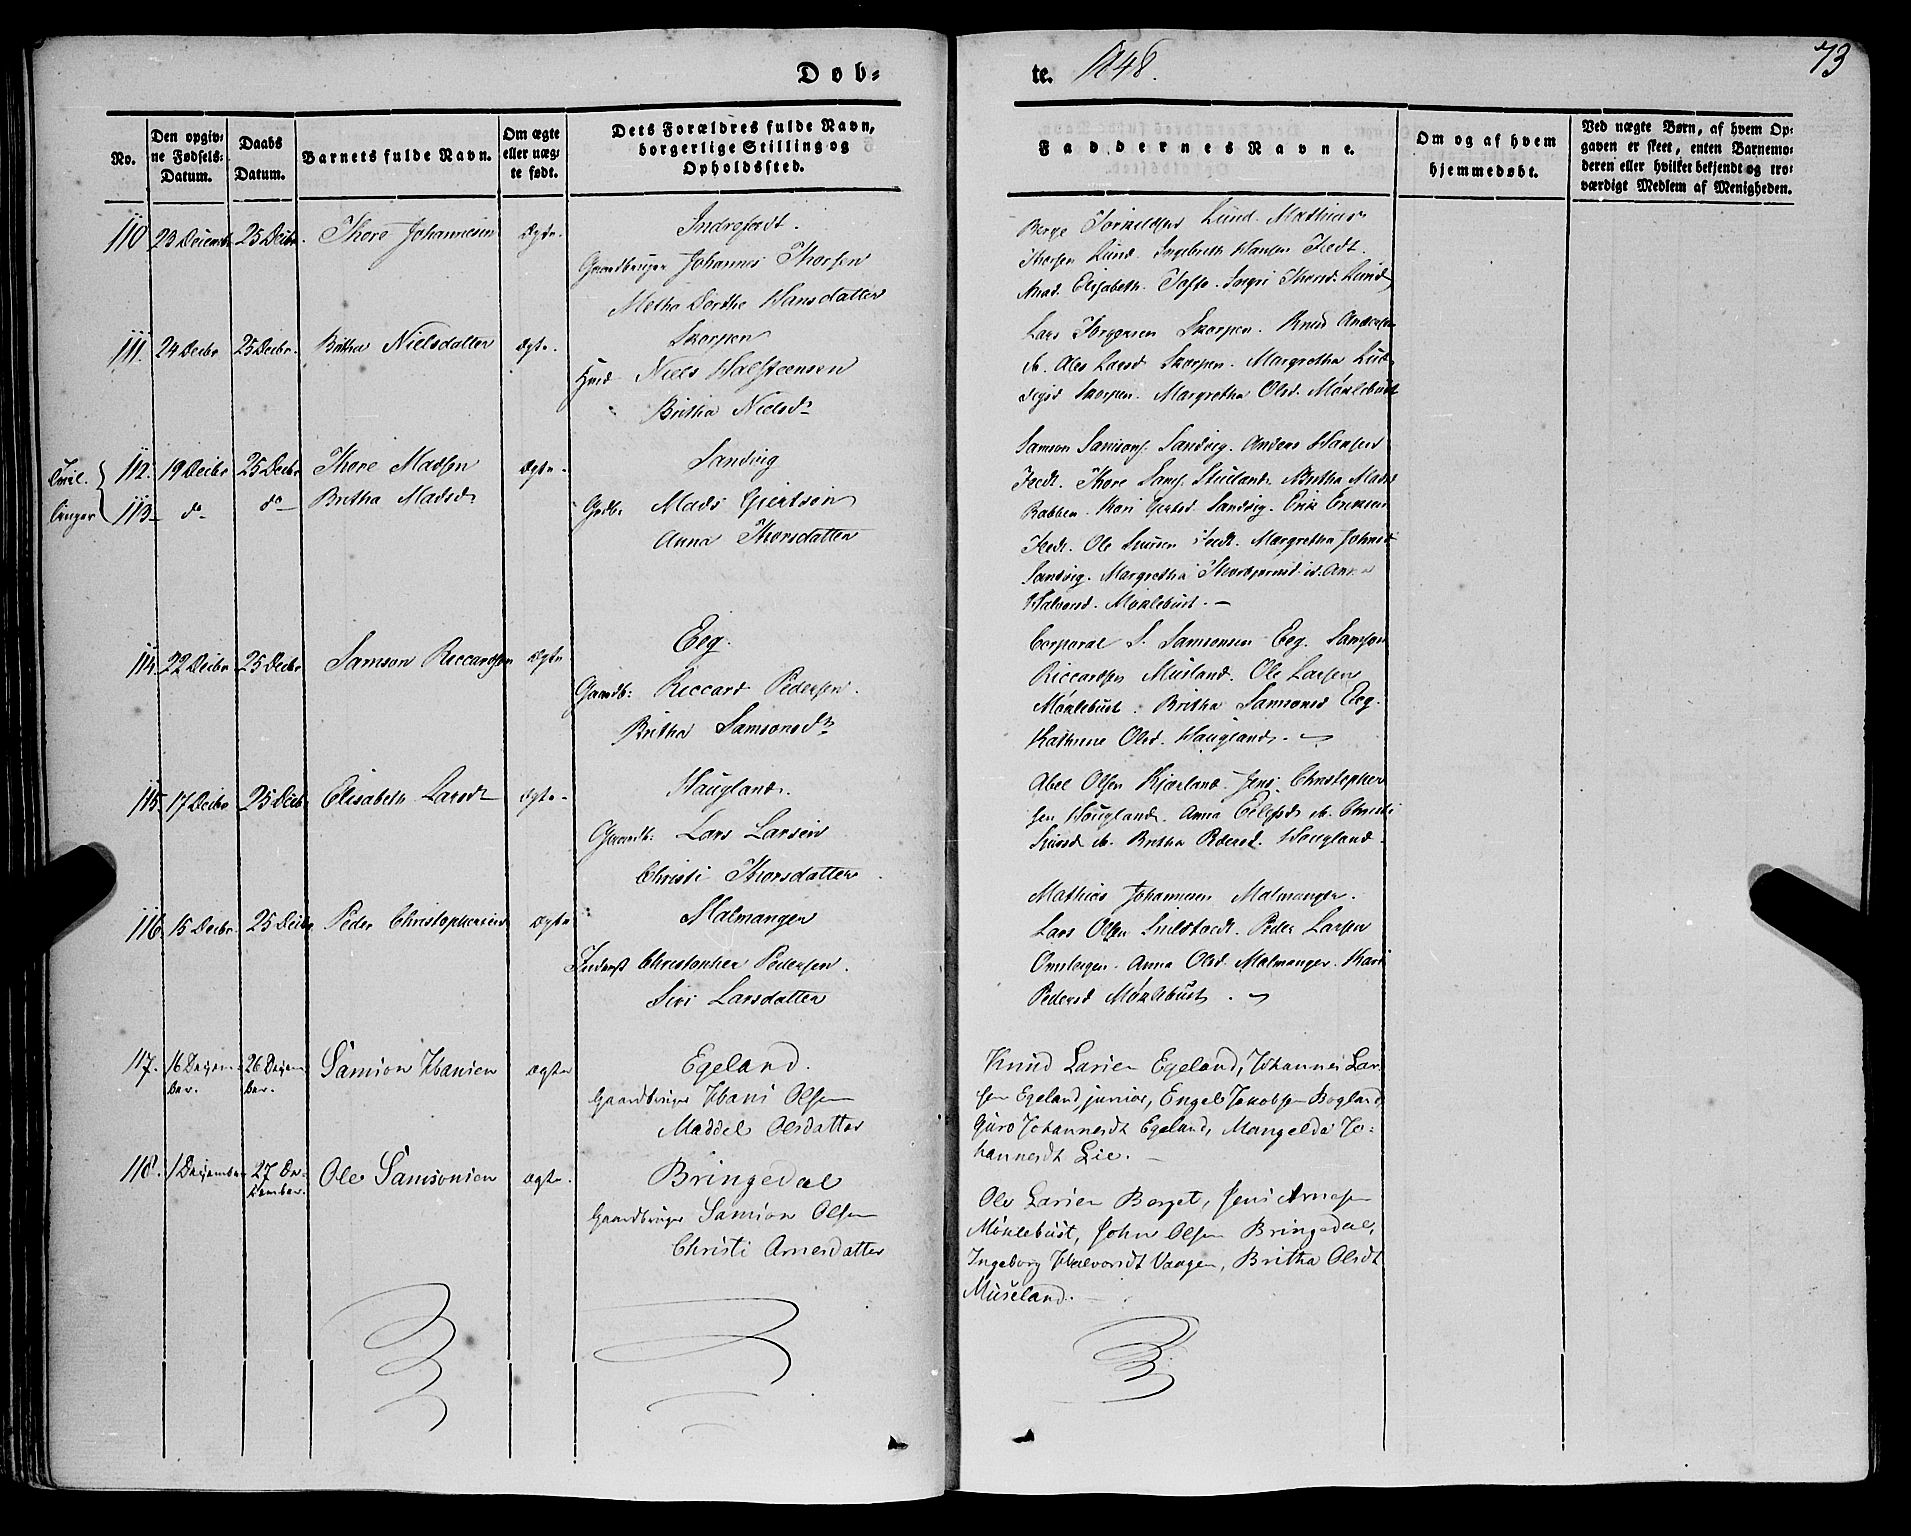 Døb-
te. 1848.
73
No.
Den opgiv-
ne Fødsels-
Datum.
Daabs
Datum.
Barnets fulde Navn.
Om ægte
eller uæg-
te født.
Dets Forældres fulde Navn,
borgerlige Stilling og
Opholdssted.
Faddernes Navne.
Om og af hvem
hjemmedøbt.
Ved uægte Børn, af hvem Op-
gaven er skeet, enten Barnemo-
deren eller hvilket bekjendt og tro-
værdigt Medlem af Menigheden.
110 23 Decemb. 25 Decbr. Thore Johannesen ægte.
Gaardbruger Johannes Thorsen
Metha Dorthe Hansdatter
Berge Torkildsen Lund. Mathias
Thorsen Lund. Ingebreth Hansen Tvedt.
Elisabeth Thorsd. Lund
111. 24 Decbr 25 Decbr. Britha Nielsdatter ægte.
Skorpen
Huusd. Niels Halsteensen
Britha Nielsd.
Lars Torgersen Skorpen. Knud Andersen
ib. Ales Larsd Skorpen. Margretha Lud-
vigsd Skorpen. Margretha Olsd. Møklebust
Tvil-
linger
112. 19 Decbr 25 Decbr Thore Madsen ægte.
113 do do Britha Madsd.
Sandvig
Gdb. Mads Giertsen
Anna Thorsdatter
Samson Samsons. Sandvig. Anders Hansen
Tvedt. Thore Britha Madsd
Rabben. Kari Giertsd Sandvig. Erik Ericksen
Tvedt. Ole Tvedt. Margretha Johnsd
Sandvig. Margretha ib. Anna
Halvorsd. Møklebust. —
114. 22 Decbr 25 Decbr Samson Riccardsen ægte
Eeg.
Gaardb: Riccard Pedersen.
Britha Samsonsdr
Corporal S. Samsonsen Eeg. Samson
Riccardsen Musland. Ole Larsen
Møklebust. Britha Samsonsd Eeg.
Kathrine Olsd. Haugland. —
115. 17 Decbr 25 Decbr Elisabeth Larsdr ægte.
Haugland.
Gaardb: Lars Larsen
Christi Thorsdatter.
Abel Olsen Kjærland. Jens Christopher-
sen Haugland. Anna ib. Christi
ib. Britha Pedersd. Haugland.
116. 15 Decbr. 25 Decbr Peder Christophersen ægte
Malmanger
Inderst Christopher Pedersen.
Siri Larsdatter
Mathias Johannesen Malmanger.
Lars Olsen Peder Larsen
Omvikgen. Anna Olsd. Malmanger. Kari
Pedersd Møklebust. —
117. 16 Decem-
ber. 26 Decem-
ber. Samson Hansen ægte
Egeland.
Gaardbruger Hans Olsen
Maddel Olsdatter
Knud Larsen Egeland, Johannes Lar-
sen Egeland junior, Engel Jakobsen Bogland,
Guro Johannesdt Egeland, Mangelda Jo-
hannesdt Lie. —
118. 1 December 27 De-
cember. Ole Samsonsen ægte.
Bringedal
Gaardbruger Samson Olsen
Christi Arnesdatter
Ole Larsen Berget, Jens Arnesen
Møklebust, John Olsen Bringedal,
Ingeborg Halvorsdt Vaagen, Britha Olsdt
Museland. —